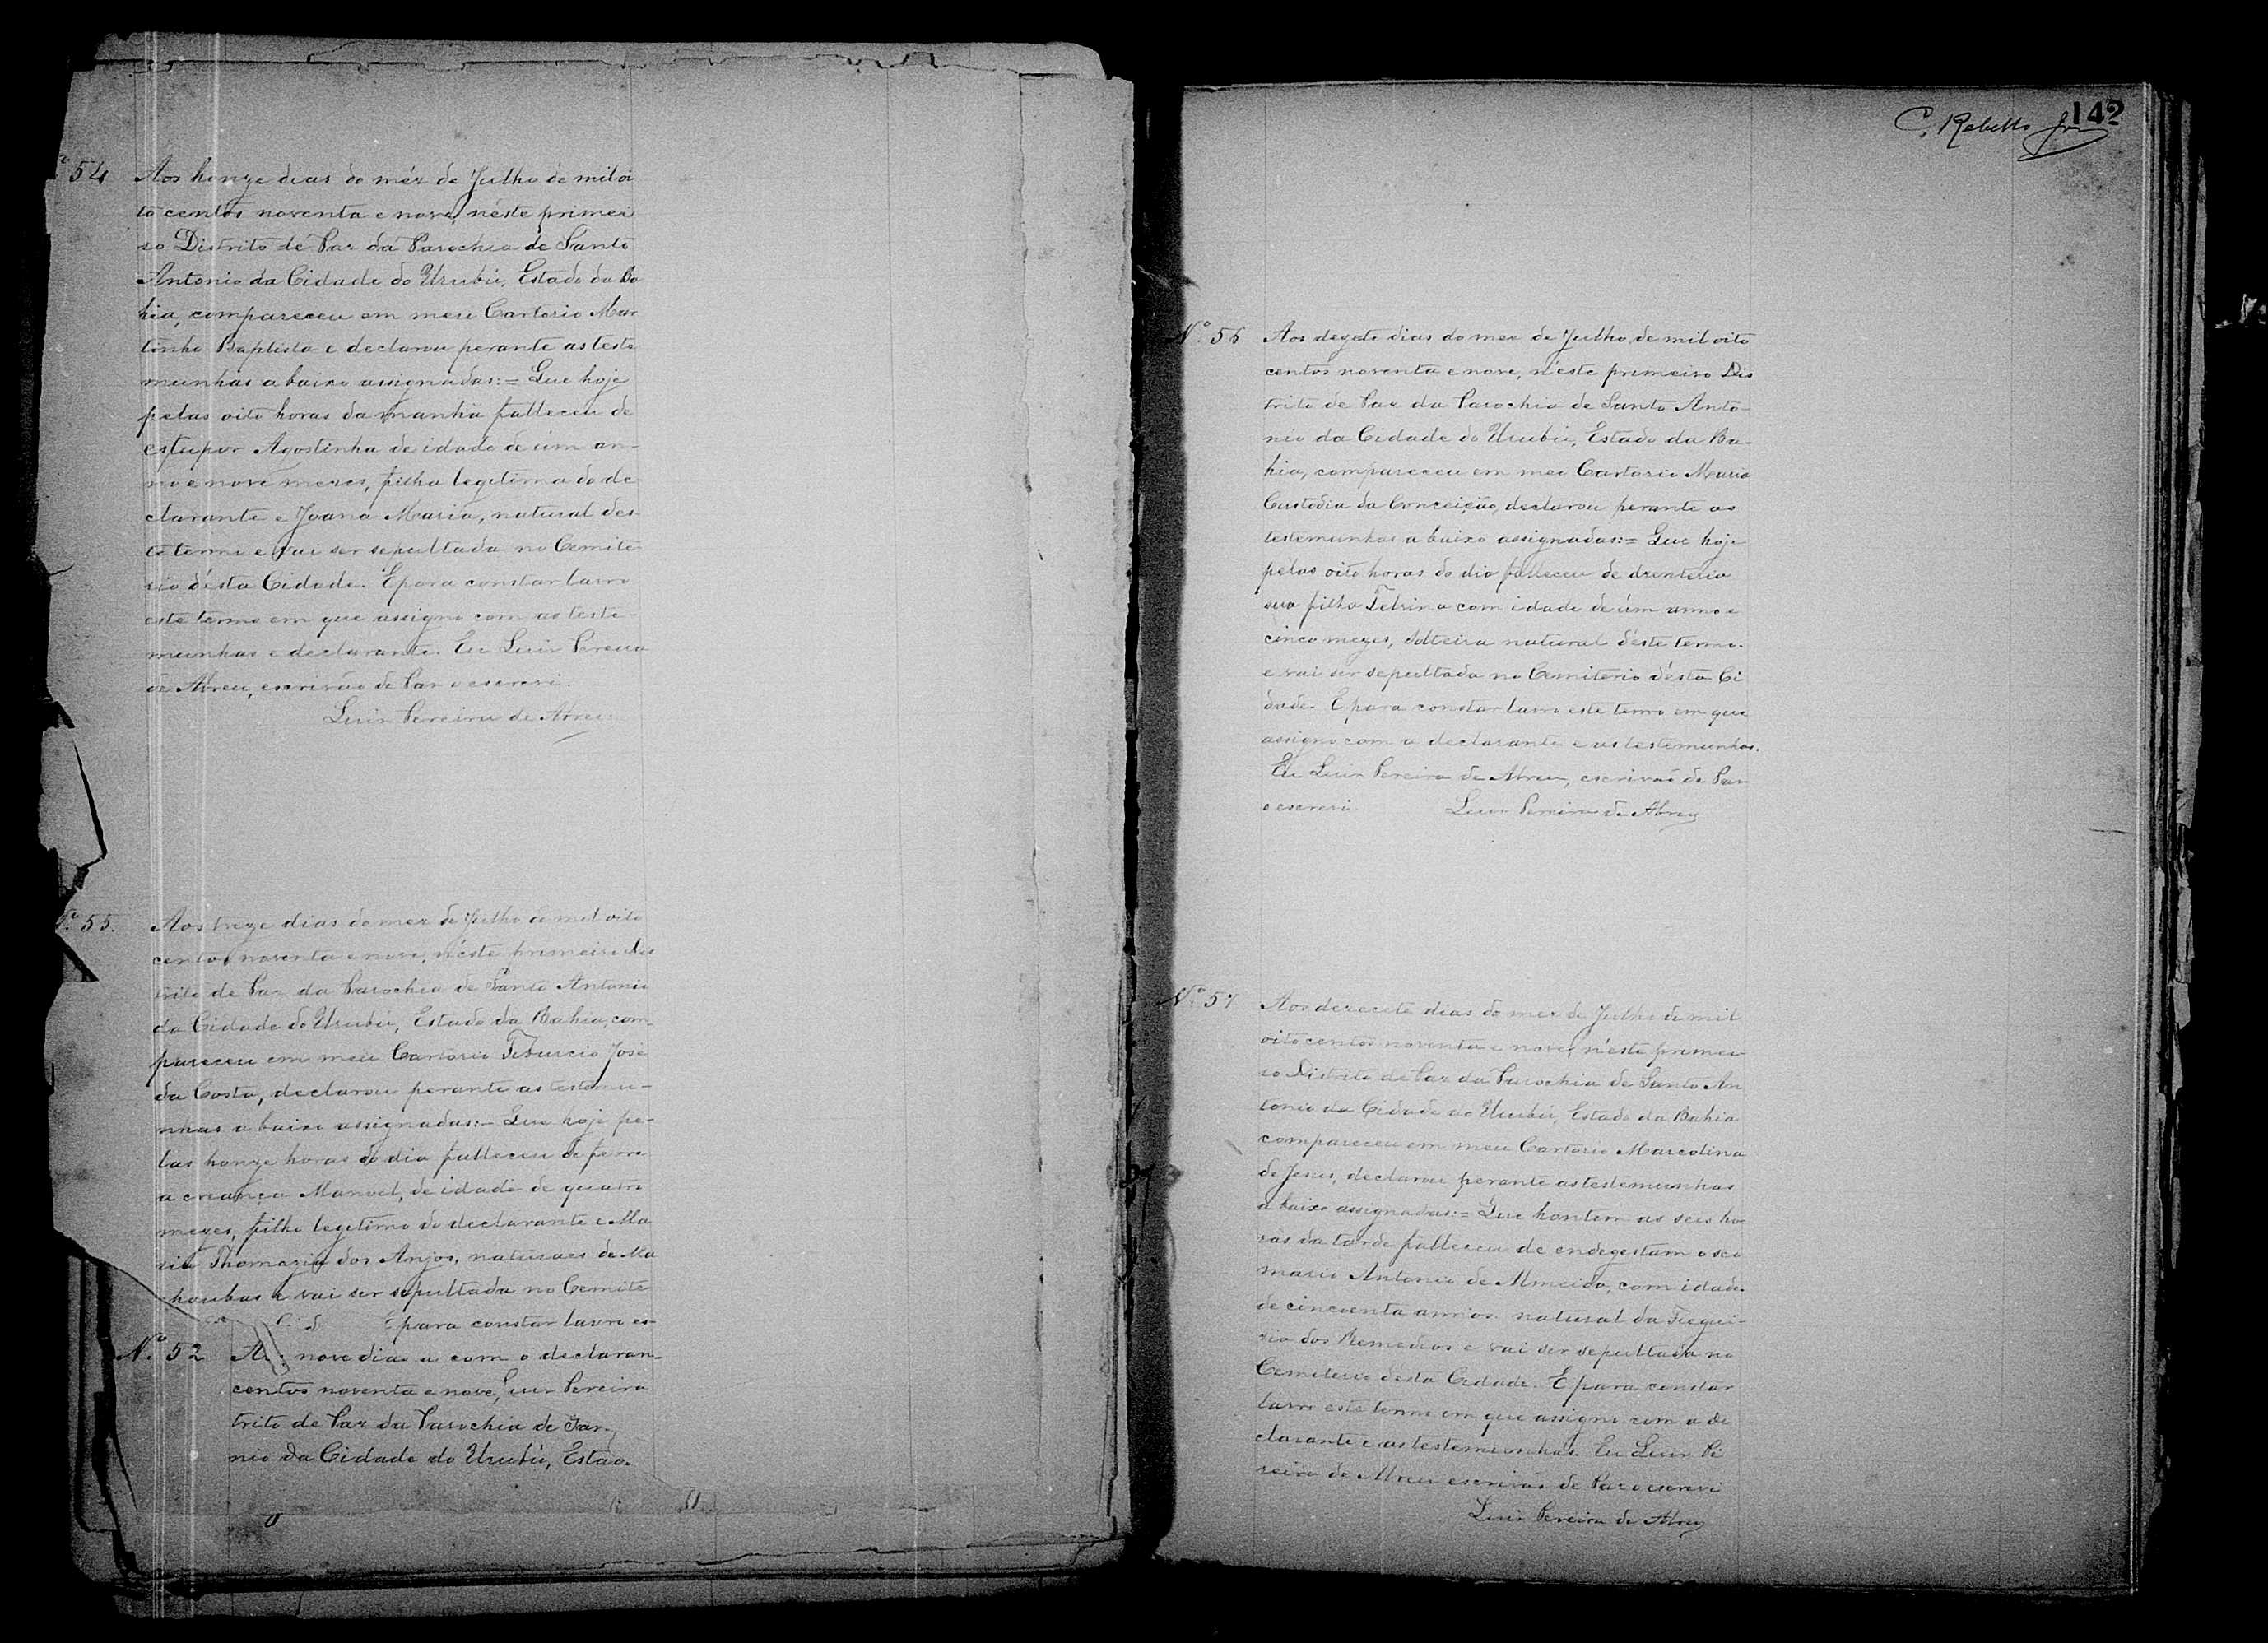 Nº 54
Aos honze dias do méz de Julho de mil oi
to centos noventa e nove, néste primei
ro Distrito de Paz da Parochia de Santo
Antonio da Cidade do Urubú, Estado da Ba
hia, compareceu em meu Cartorio Mar
tinho Baptista e declarou perante as teste
munhas a baixo assignadas:= Que hoje
pelas oito horas da manhã falleceu de
estupor Agostinha de idade de úm an-
no e nove mezes, filha legitima do de
clarante e Joana Maria, natural des-
te termo e vai ser sepultada no Cemite
rio désta Cidade. E para constar lavro
este termo em que assigno com as teste-
munhas e declarante. Eu Luiz Pereira
de Abreu, escrivão de Paz o escrevi.
Luiz Pereira de Abreu
Nº 55.
Aos treze dias do mez de Julho de mil oito
centos noventa e nove, néste primeiro Dis
trito de Paz da Parochia de Santo Antonio
da Cidade do Urubú, Estado da Bahia, com-
pareceu em meu Cartorio Tiburcio José
da Costa, declarou perante as testemu-
nhas a baixo assignadas:- Que hoje pe-
las honze horas do dia falleceu de
a creança Manoel, de idade de quatro
mezes, filho legitimo do declarante e Ma
ria Thomazia dos Anjos, naturaes de Ma
cahubas e vai ser sepultada no Cemite
E para constar lavro es-
Nº 52
nove dias a com o declaran-
centos noventa e nove, Luiz Pereira
trito de Paz da Parochia de San
nio da Cidade do Urubú, Estad
142
C. Rebello Jor
Nº 56
Aos dezete dias do mez de Julho, de mil oito
centos noventa e nove, n'éste primeiro Dis
trito de Paz da Parochia de Santo Anto-
nio da Cidade do Urubú, Estado da Ba-
hia, compareceu em meu Cartorio Maria
Custodia da Conceição, declarou perante as
testemunhas a baixo assignadas:= Que hoje
pelas oito horas do dia falleceu de drenteria
sua filha com idade de úm anno e
cinco mezes, solteira natural déste termo.
e vai ser sepultada no Cemiterio désta Ci
dade. E para constar lavro este termo em que
assigno com a declarante e as testemunhas.
Eu Luiz Pereira de Abreu, escrivão de Paz
o escrevi Luiz Pereira de Abreu
Nº 57
Aos dezecete dias do mez de Julho de mil
oito centos noventa e nove, n'éste primei
ro Distrito de Paz da Parochia de Santo An
tonio da Cidade do Urubú, Estado da Bahia
compareceu em meu Cartorio Marcolina
de Jesus, declarou perante as testemunhas
a baixo assignadas:= Que hontem as seis ho
ras da tarde falleceu de endegestam o seo
marió Antonio de Almeida, com idade
de cincoenta annos. natural da Fregui-
zia dos Remedios e vai ser sepultada no
Cemiterio désta Cidade. E para constar
lavro este termo em que assigno com a de
clarante e as testemunhas. Eu Luiz Pe
reira de Abreu escrivão de Paz o escrevi
Luiz Pereira de Abreu